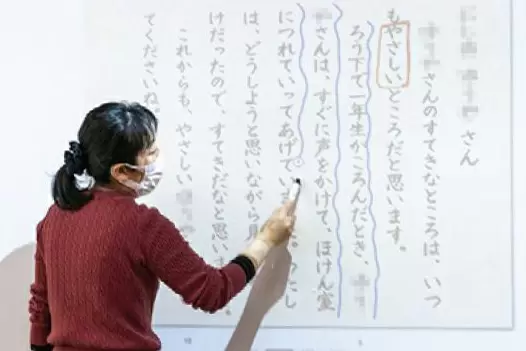 さん
さんのすてきなところは、いつ
もやさしいところだと思います。
ろう下で一年生がころんだとき、
さんは、すぐに声をかけて、ほけん室
につれていってあげてい
たし
は、どうしようと思いながら見
けだったので、すてきだなと思いま
これからも、やさしい
てくださいね。